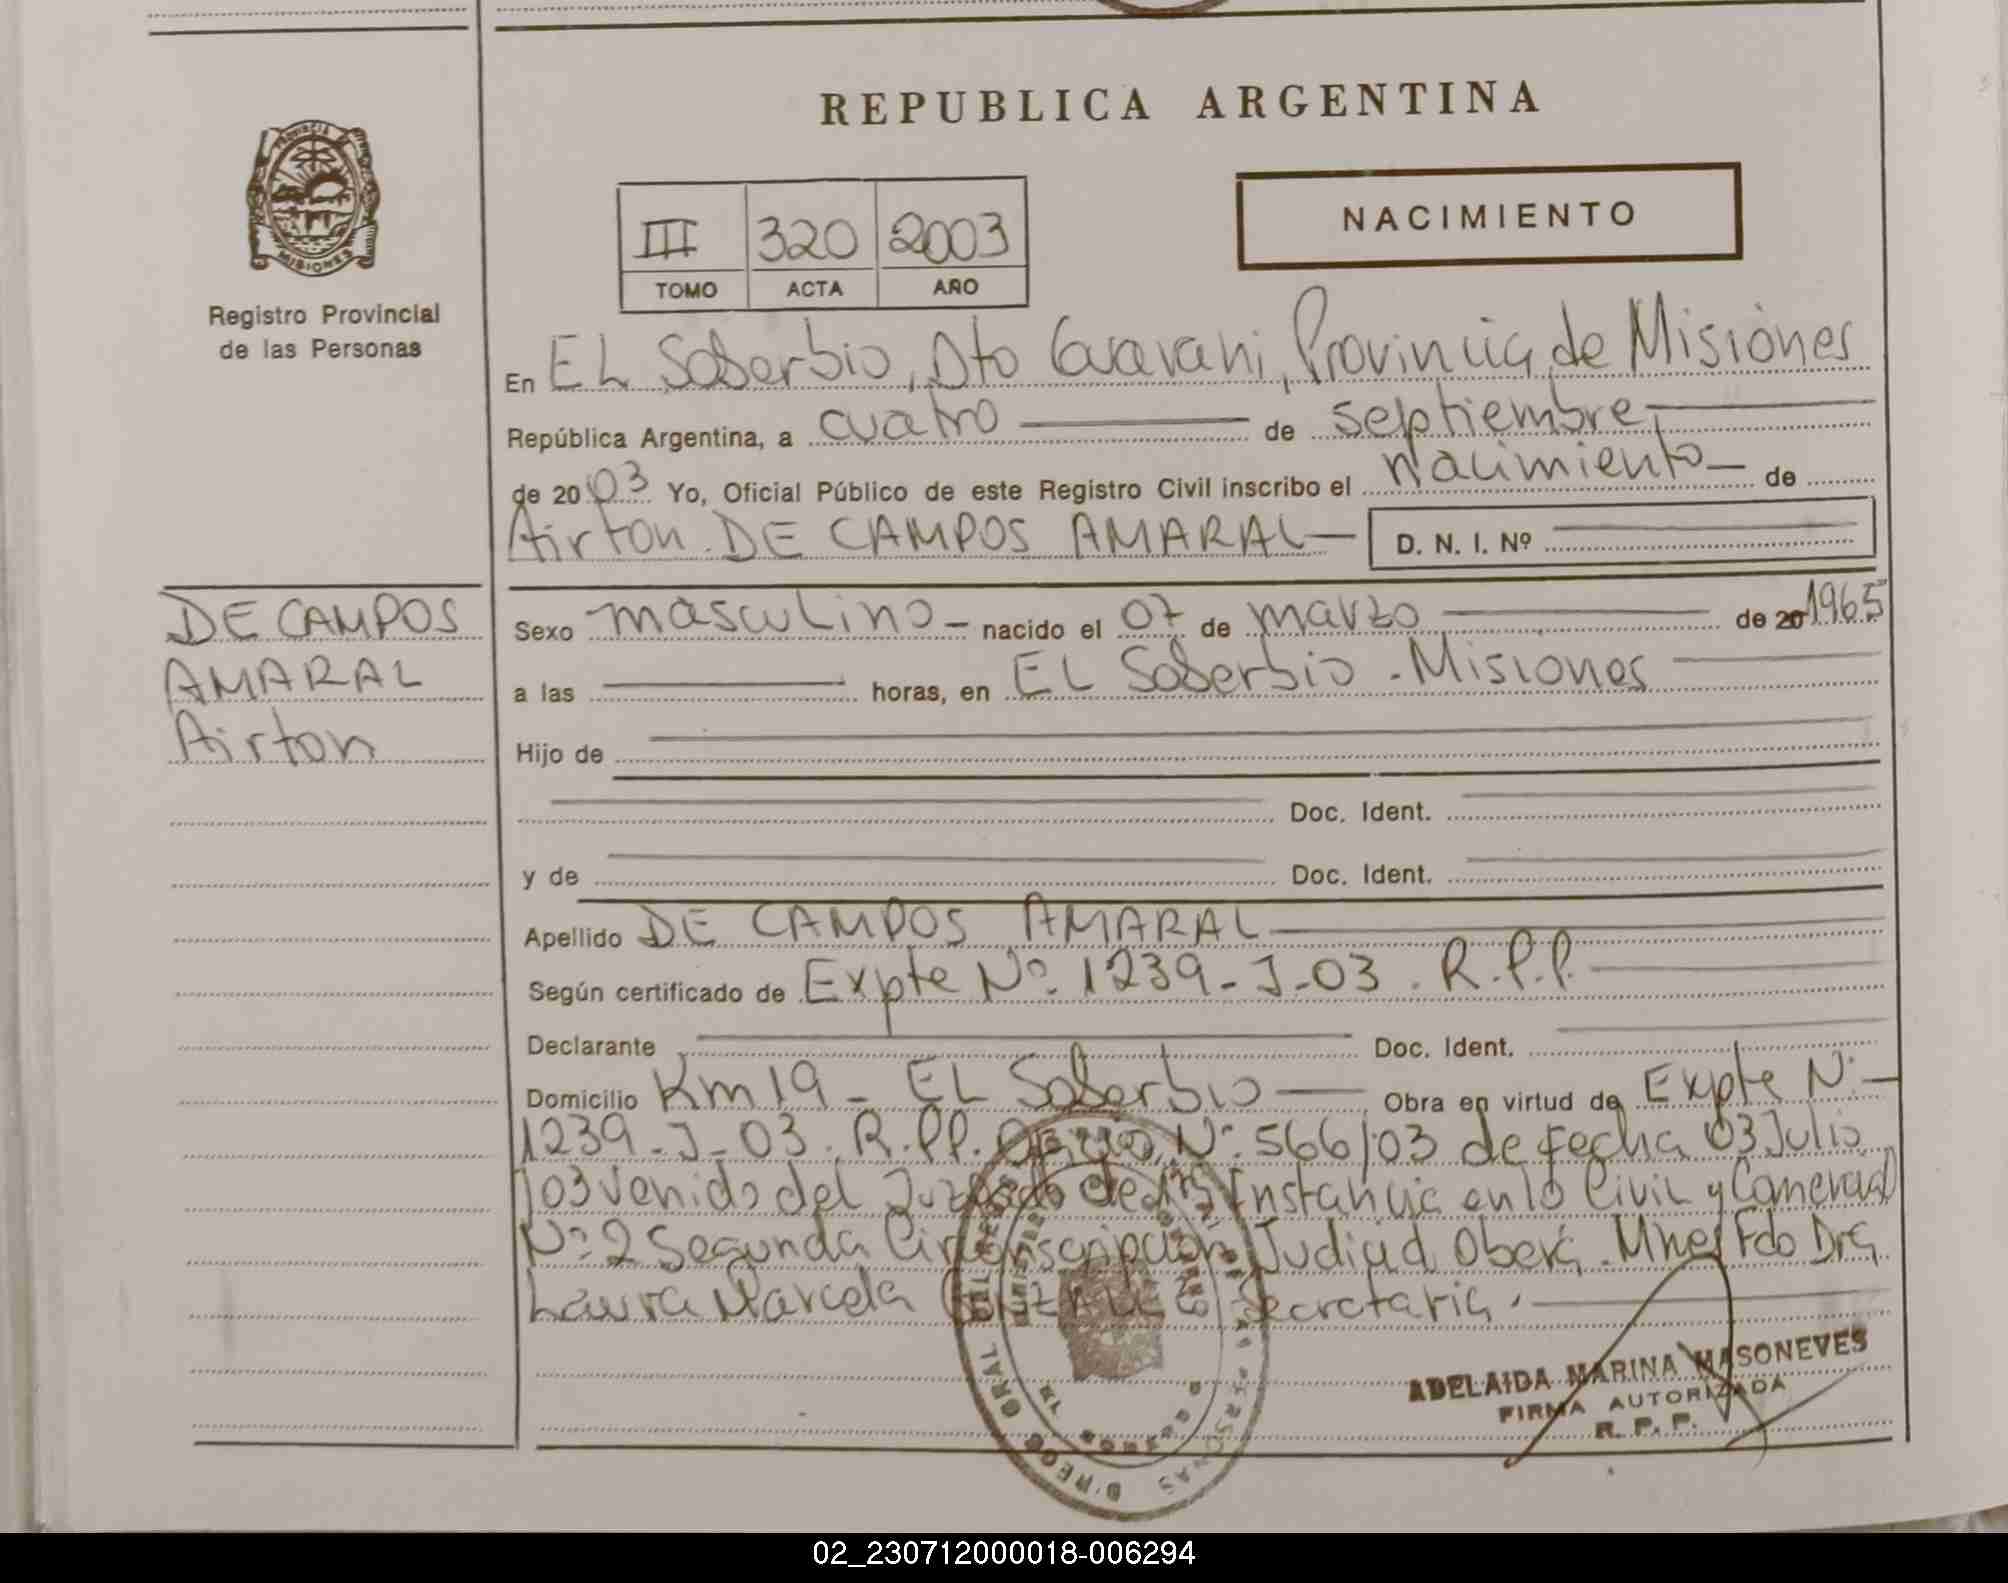 REPUBLICA ARGENTINA
PROVINCIA
MISIONES
Registro Provincial
de las Personas
NACIMIENTO
III 320 2003
TOMO ACTA AÑO
En EL Soberbio, Dto Guarani, Provincia de Misiones
República Argentina, a cuatro de septiembre,
de 2003 Yo, Oficial Público de este Registro Civil inscribo el nacimiento de
Airton DE CAMPOS AMARAL D. N. I. Nº
DE CAMPOS
AMARAL
Airton
Sexo masculino nacido el 07 de marzo de 20 1965
a las horas, en EL Soberbio - Misiones
Hijo de
Doc. Ident.
y de Doc. Ident.
Apellido DE CAMPOS AMARAL
Según certificado de Expte Nº 1239-J-03. R.P.P.
Declarante Doc. Ident.
Domicilio Km 19 - EL Soberbio Obra en virtud de Expte Nº
1239-J-03. R.P.P. Oficio Nº 566/03 de fecha 03 Julio
/03 venido del Juzgado de 1ra Instancia en lo Civil y Comercial
Nº 2 Segunda Circunscripción Judicial Oberá. Mnes Fdo Dra
Laura Marcela Secretaria.
ADELAIDA MARINA MASONEVES
FIRMA AUTORIZADA
R. P. P.
02_230712000018-006294